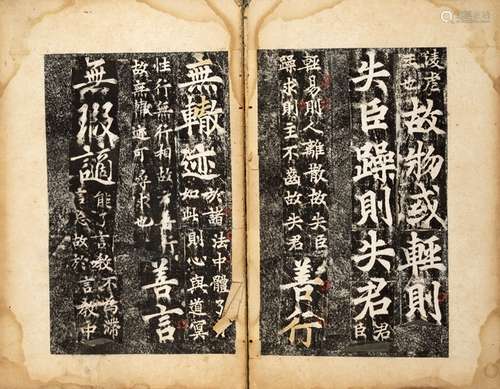 故物或輕則
失臣躁則失君
君
臣
輕易則人離散故失臣
躁求則主不齒故失君
善行
無轍迹
於諸法中體了
如此則心與道冥
性行無行相故 善行
故無轍迹可尋求也
善言
無瑕謫
能了言教不為滯
言忘故於言教中